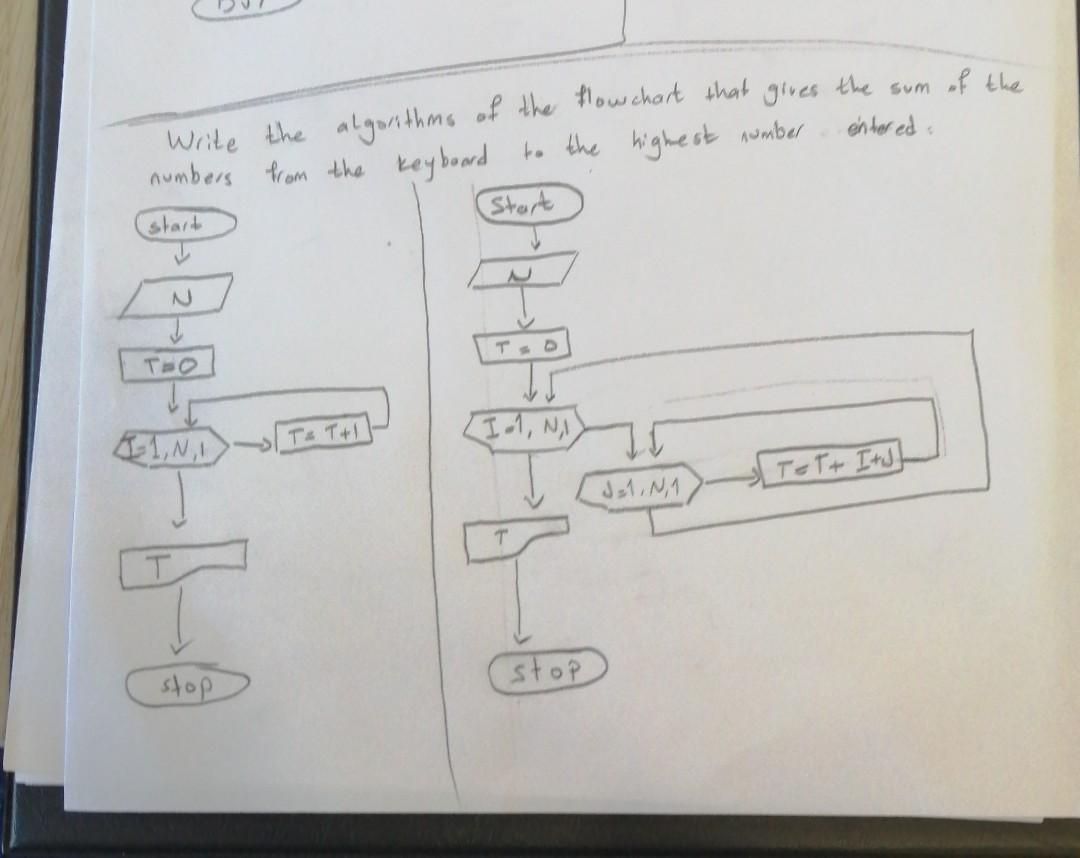 Write the algorithms of the flowchart that gives the sum of the
numbers from the keyboard to the highest number entered:
start
N
T=0
I=1, N, 1
T= T+1
T
stop
Start
N
T = 0
I=1, N, 1
J=1, N, 1
T=T+ I+J
T
stop